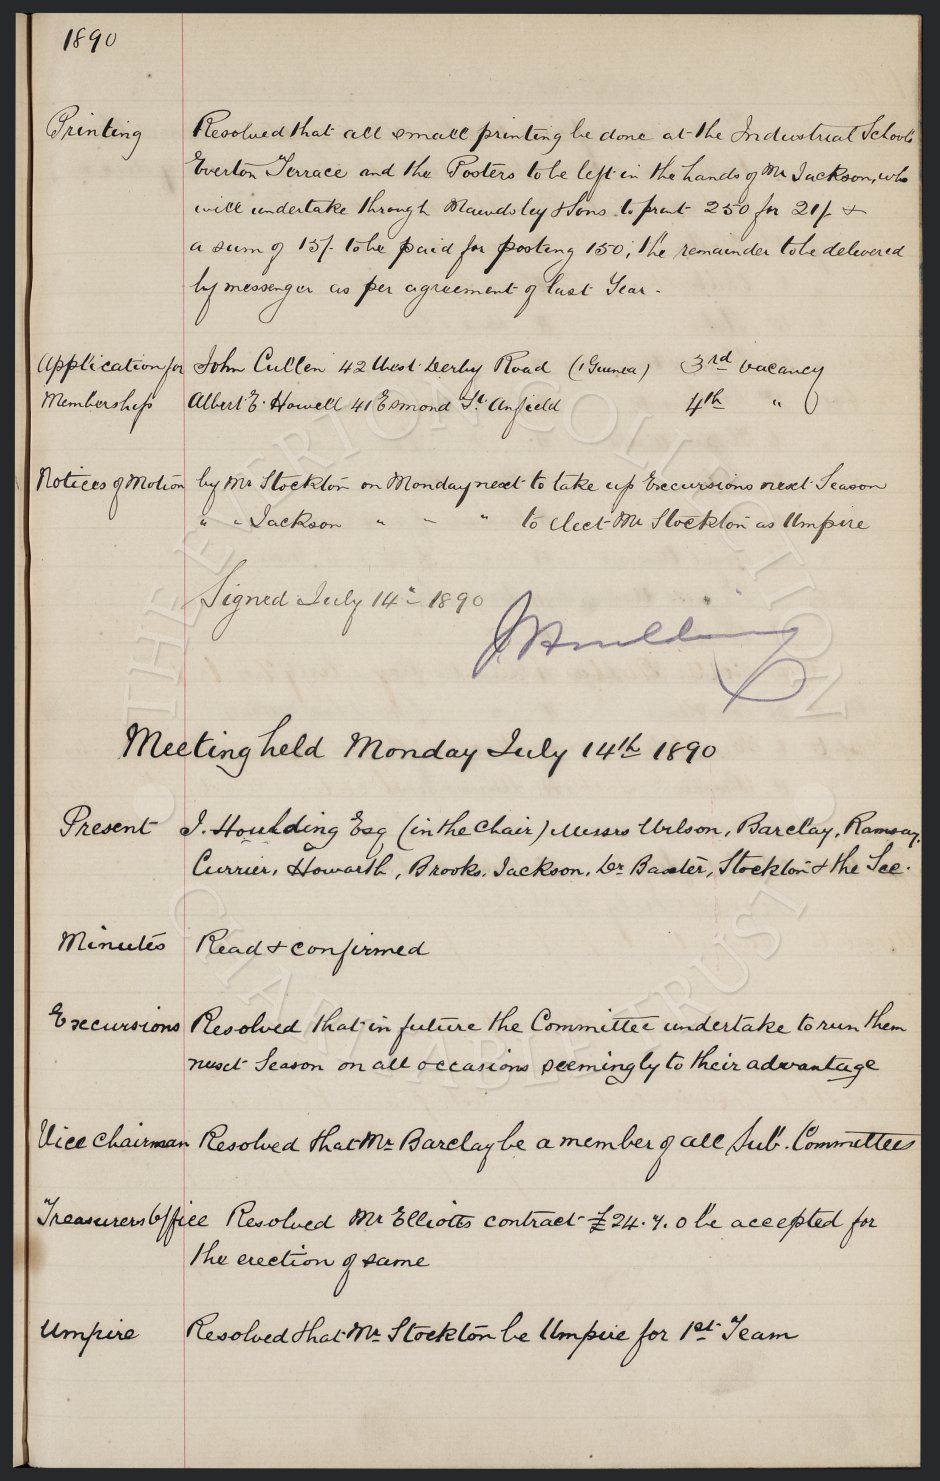 1890
Printing Resolved that all small printing be done at the Industrial Schools
Everton Terrace and the Posters to be left in the hands of Mr Jackson, who
will undertake through Mawdsley & Sons to print 250 for 21/- &
a sum of 15/- to be paid for posting 150; the remainder to be delivered
by messenger as per agreement of last Year.
Application for John Cullen 42 West Derby Road (1 Guinea) 3rd vacancy
Membership Albert E. Howell 41 Esmond St. Anfield 4th "
Notices of Motion by Mr Stockton on Monday next to take up Excursions next Season
" " Jackson " " " to elect Mr Stockton as Umpire
Signed July 14th 1890
J Houlding
Meeting held Monday July 14th 1890
Present J. Houlding Esq (in the Chair) Messrs Wilson, Barclay, Ramsay,
Currier, Howarth, Brooks, Jackson, Dr Baxter, Stockton & the Sec.
Minutes Read & confirmed
Excursions Resolved that in future the Committee undertake to run them
next Season on all occasions seemingly to their advantage
Vice Chairman Resolved that Mr Barclay be a member of all Sub. Committees
Treasurers Office Resolved Mr Elliotts contract £24.7.0 be accepted for
the erection of same
Umpire Resolved that Mr Stockton be Umpire for 1st Team
THE EVERTON COLLECTION
CHARITABLE TRUST